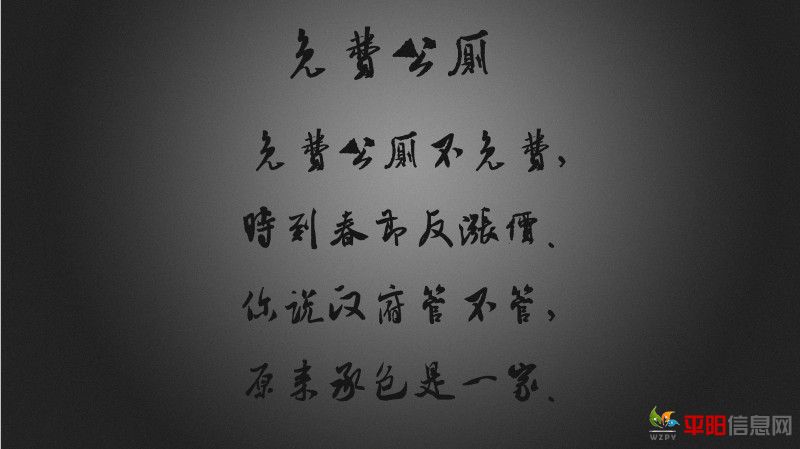 免費公厕
免費公厕不免費，
時到春节反漲價.
你说汉府管不管，
原来承包是一家.
WZPY 平阳信息网